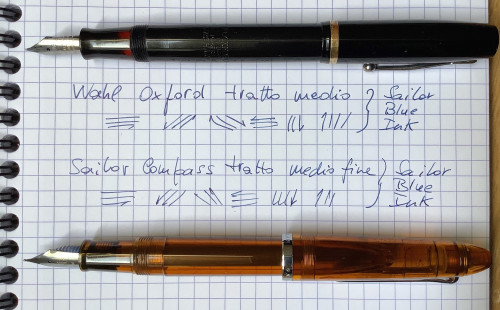 Wahl Oxford tratto medio } Sailor
Blue
Ink
Sailor Compass tratto medio fine } Sailor
Blue
Ink